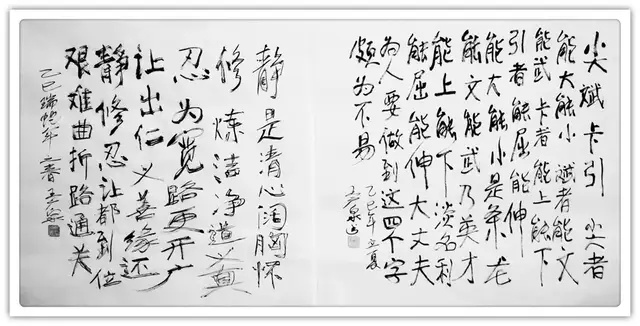 尖斌卡引 尖者
能大能小 斌者能文
能武 卡者能上能下
引者能屈能伸
能大能小是条龙
能文能武乃英才
能上能下淡名利
能屈能伸大丈夫
为人要做到这四个字
颇为不易
乙巳年立夏
静是清心阔胸怀
修炼洁净道义
忍为宽路更开广
让出仁义善缘还
静修忍让都到位
艰难曲折路通关
乙巳瑞蛇年之春 王